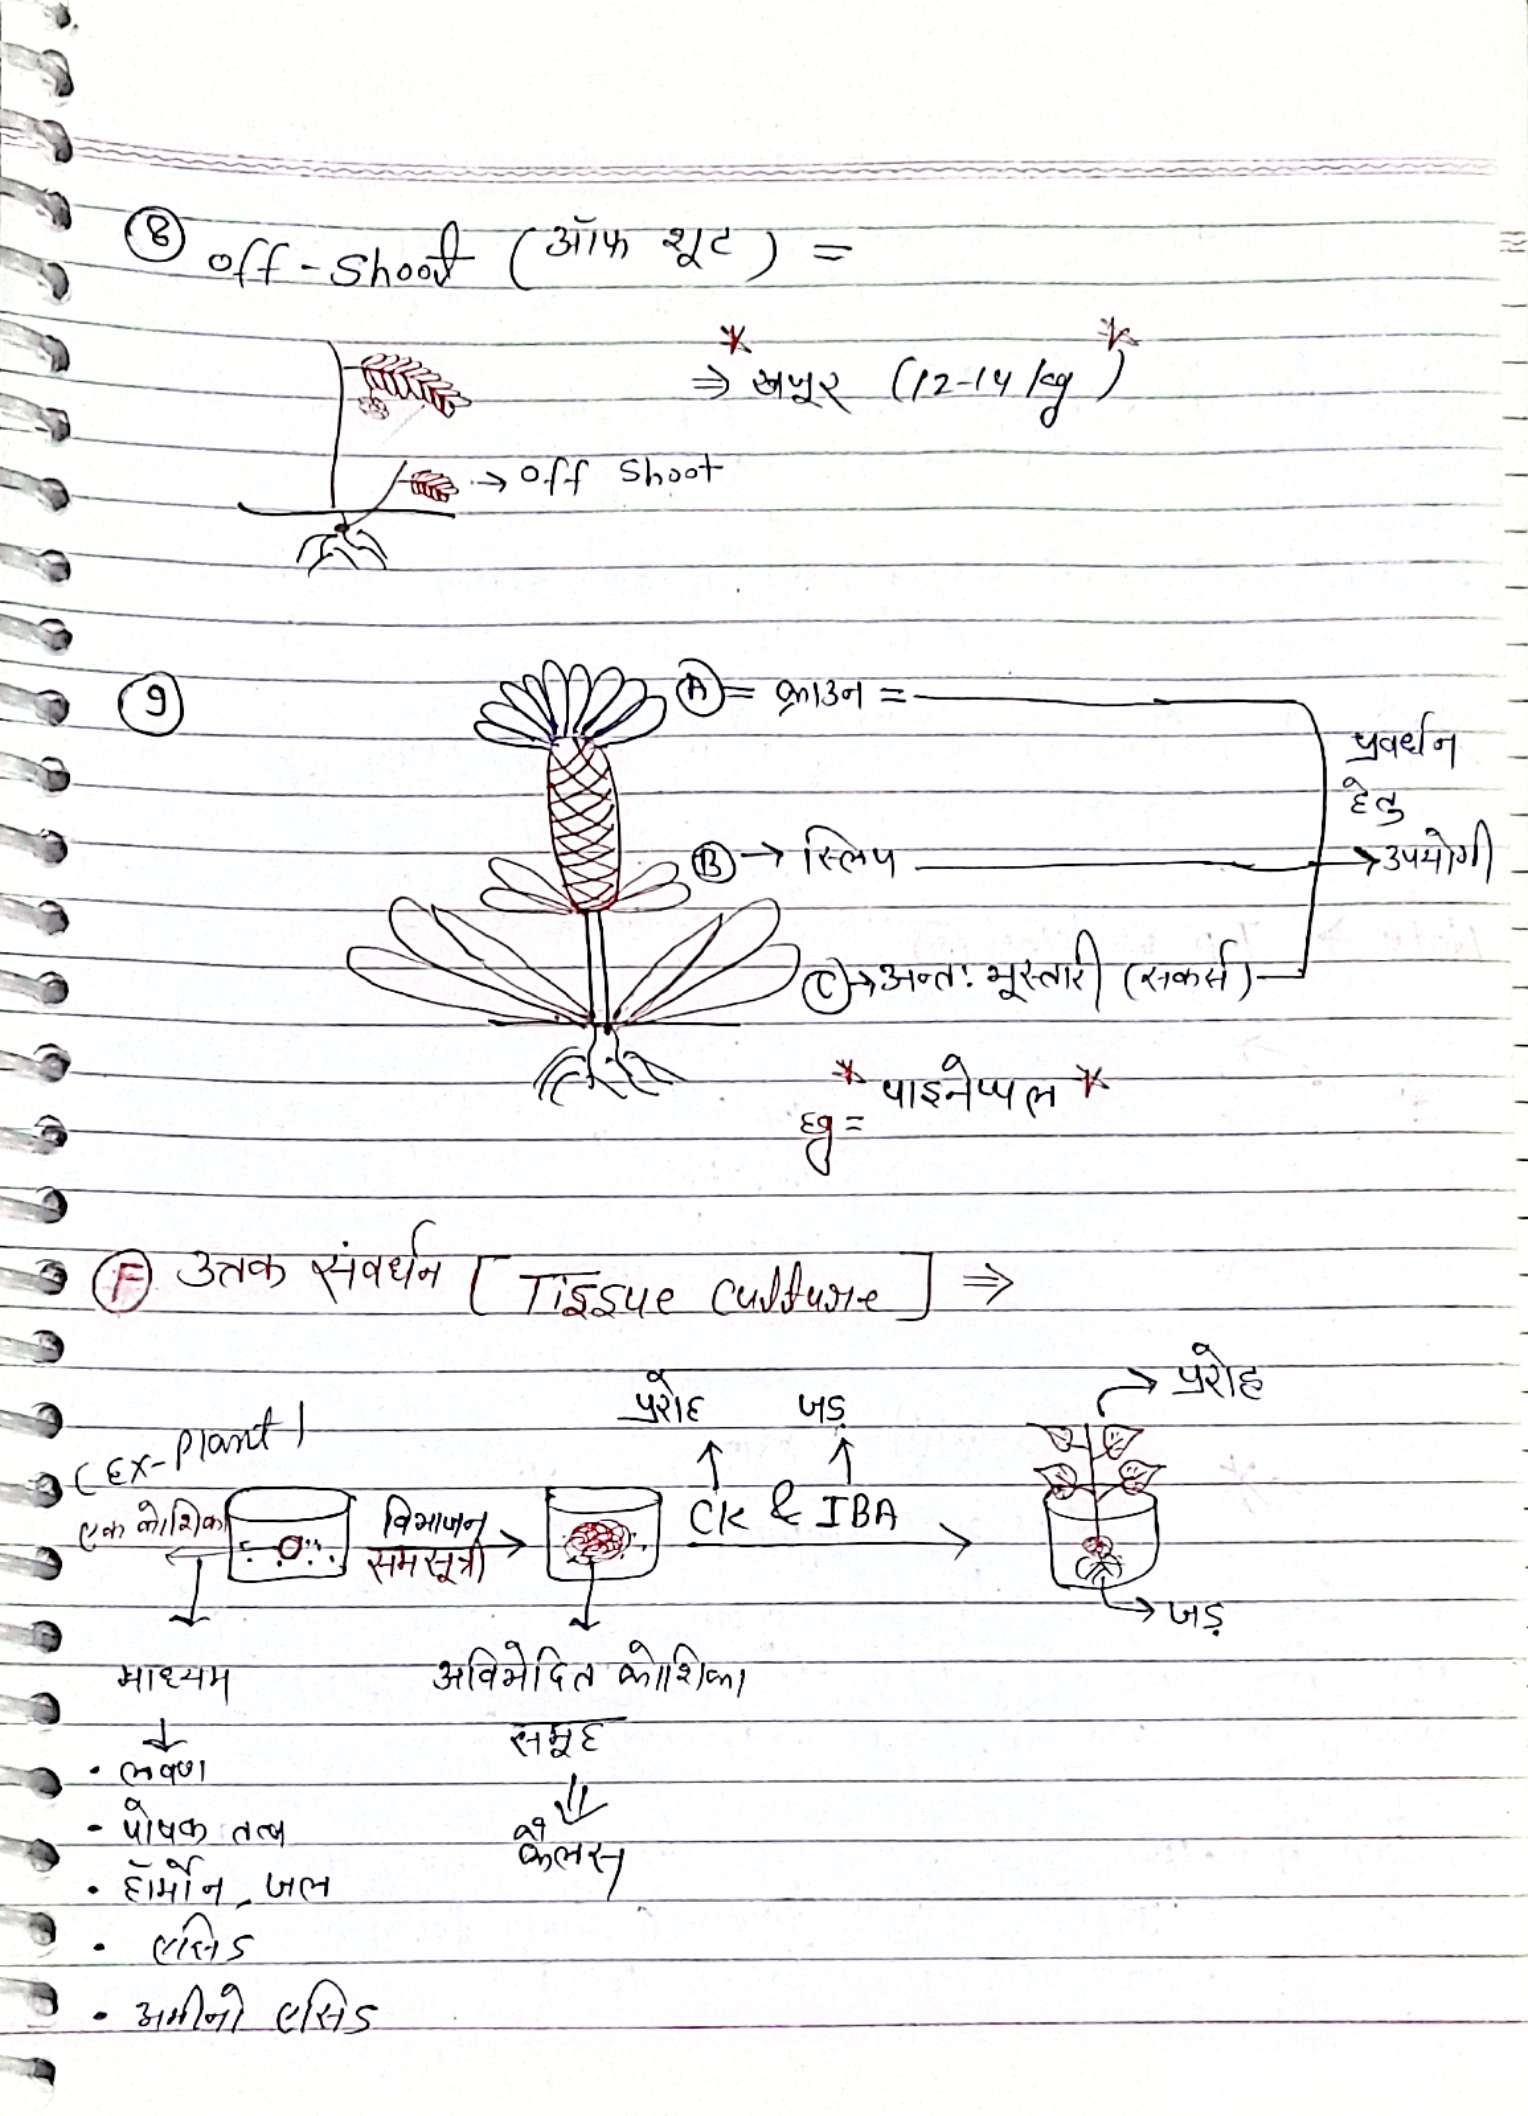 8 off-Shoot (ऑफ शूट) =
⇒ खजूर (12-14 kg)
→ off Shoot
9
A = क्राउन =
प्रवर्धन
हेतु
B → स्लिप → उपयोगी
C → अन्तः भूस्तारी (सकर्स)
Eg = * पाइनेप्पल *
F उत्तक संवर्धन [Tissue Culture] ⇒
प्ररोह जड़ → प्ररोह
(Ex-plant)
एक कोशिका विभाजन CK & IBA
समसूत्री
→ जड़
माध्यम अविभेदित कोशिका
समूह
• लवण
- पोषक तत्व कैलस
• हॉर्मोन, जल
• एसिड
• अमीनो एसिड